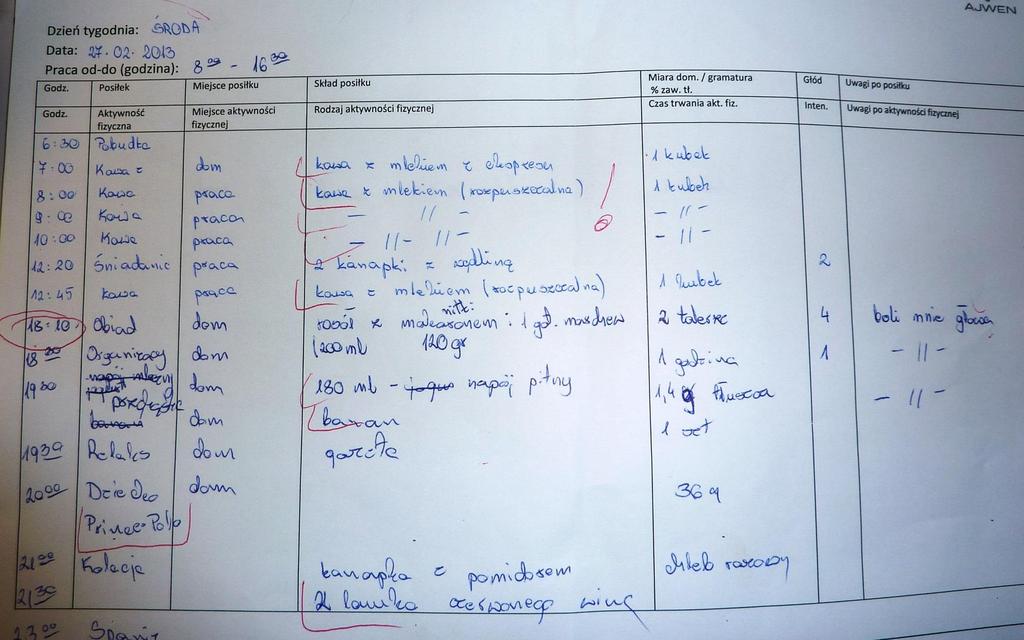 AJWEN
Dzień tygodnia: ŚRODA
Data: 27.02.2013
Praca od-do (godzina): 8 00 - 16 30
Godz. Posiłek Miejsce posiłku Skład posiłku Miara dom. / gramatura % zaw. tł. Głód Uwagi po posiłku
Godz. Aktywność fizyczna Miejsce aktywności fizycznej Rodzaj aktywności fizycznej Czas trwania akt. fiz. Inten. Uwagi po aktywności fizycznej
6:30 Pobudka
7:00 Kawa z dom kawa z mlekiem z ekspresu 1 kubek
8:00 Kawa praca kawa z mlekiem (rozpuszczalna) 1 kubek
9:00 Kawa praca - // - - // -
10:00 Kawa praca - // - // - - // -
12:20 Śniadanie praca 2 kanapki z wędliną 2
12:45 Kawa praca kawa z mlekiem (rozpuszczalna) 1 kubek
18:10 Obiad dom rosół z makaronem nitki: 1 got. marchew 2 talerze 4 boli mnie głowa
1200ml 120gr
18 30 dom 1 godzina 1 - // -
19 00 napój mleczny przekąska dom 180 ml - napój pitny 1,4 g tłuszcza - // -
banan dom banan 1 szt
19 30 Relaks dom gazeta
20 00 dom 36 g
Prince Polo
21 00 Kolacja kanapka z pomidorem chleb razowy
21 30 2 lampka czerwonego wina
23 00 Spanie